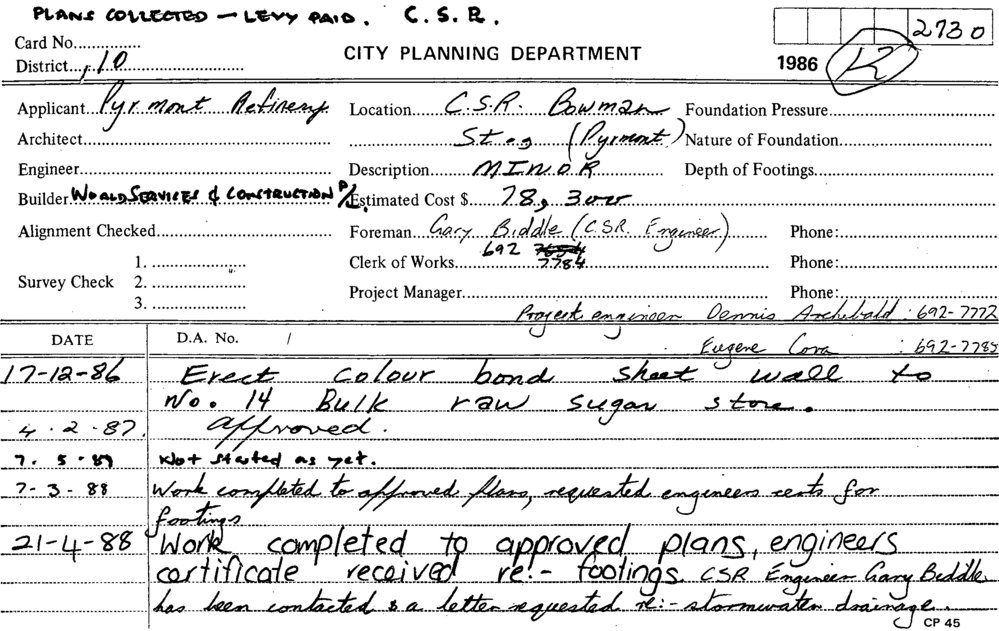 PLANS COLLECTED - LEVY PAID. C.S.R.
2730
Card No.
CITY PLANNING DEPARTMENT
1986
District 10
Applicant Pyrmont Refinery Location C.S.R. Bowman Foundation Pressure
Architect St., (Pyrmont) Nature of Foundation
Engineer Description MINOR Depth of Footings
Builder WORLD SERVICES & CONSTRUCTION P/L. Estimated Cost $ 78, 300
Alignment Checked Foreman Gary Biddle (CSR Engineer) Phone:
692 7784
Survey Check 1. Clerk of Works Phone:
2.
3. Project Manager Phone:
Project engineer Dennis Archebald : 692-7772
DATE D.A. No. / Eugene Cora : 692-7785
17-12-86 Erect colour bond sheet wall to
No. 14 Bulk raw sugar store.
4.2.87. approved.
7.5.87 Not started as yet.
7-3-88 Work completed to approved plans, requested engineers certs for
footings
21-4-88 Work completed to approved plans, engineers
certificate received re:- footings. CSR Engineer Gary Biddle
has been contacted & a letter requested re:- stormwater drainage.
CP 45